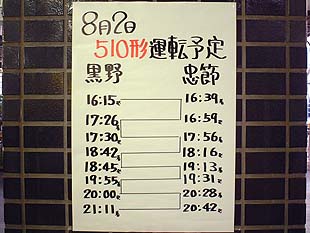 8月2日
510形運転予定
黒野 忠節
16:15発 16:39着
17:26着 16:59発
17:30発 17:56着
18:42着 18:16発
18:45発 19:13着
19:55着 19:31発
20:00発 20:28着
21:11着 20:42発